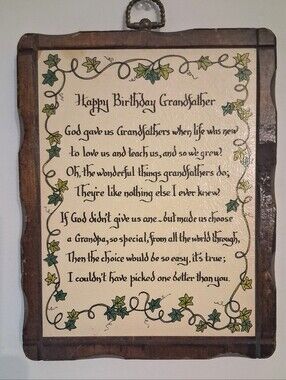 Happy Birthday Grandfather
God gave us Grandfathers when life was new
to love us and teach us, and so we grew!
Oh, the wonderful things grandfathers do;
They're like nothing else I ever knew!
If God didn't give us one - but made us choose
a Grandpa, so special, from all the world through,
Then the choice would be so easy, it's true;
I couldn't have picked one better than you.